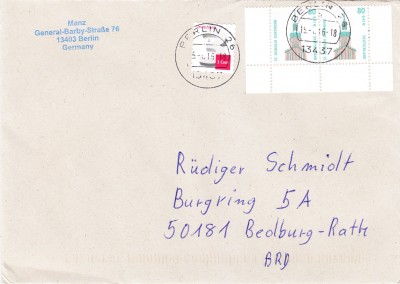 Manz
General-Barby-Straße 76
13403 Berlin
Germany
BERLIN 26
13437
BERLIN 26
-6.16-18
13437
80
80
Rüdiger Schmidt
Burgring 5A
50181 Bedburg-Rath
BRD